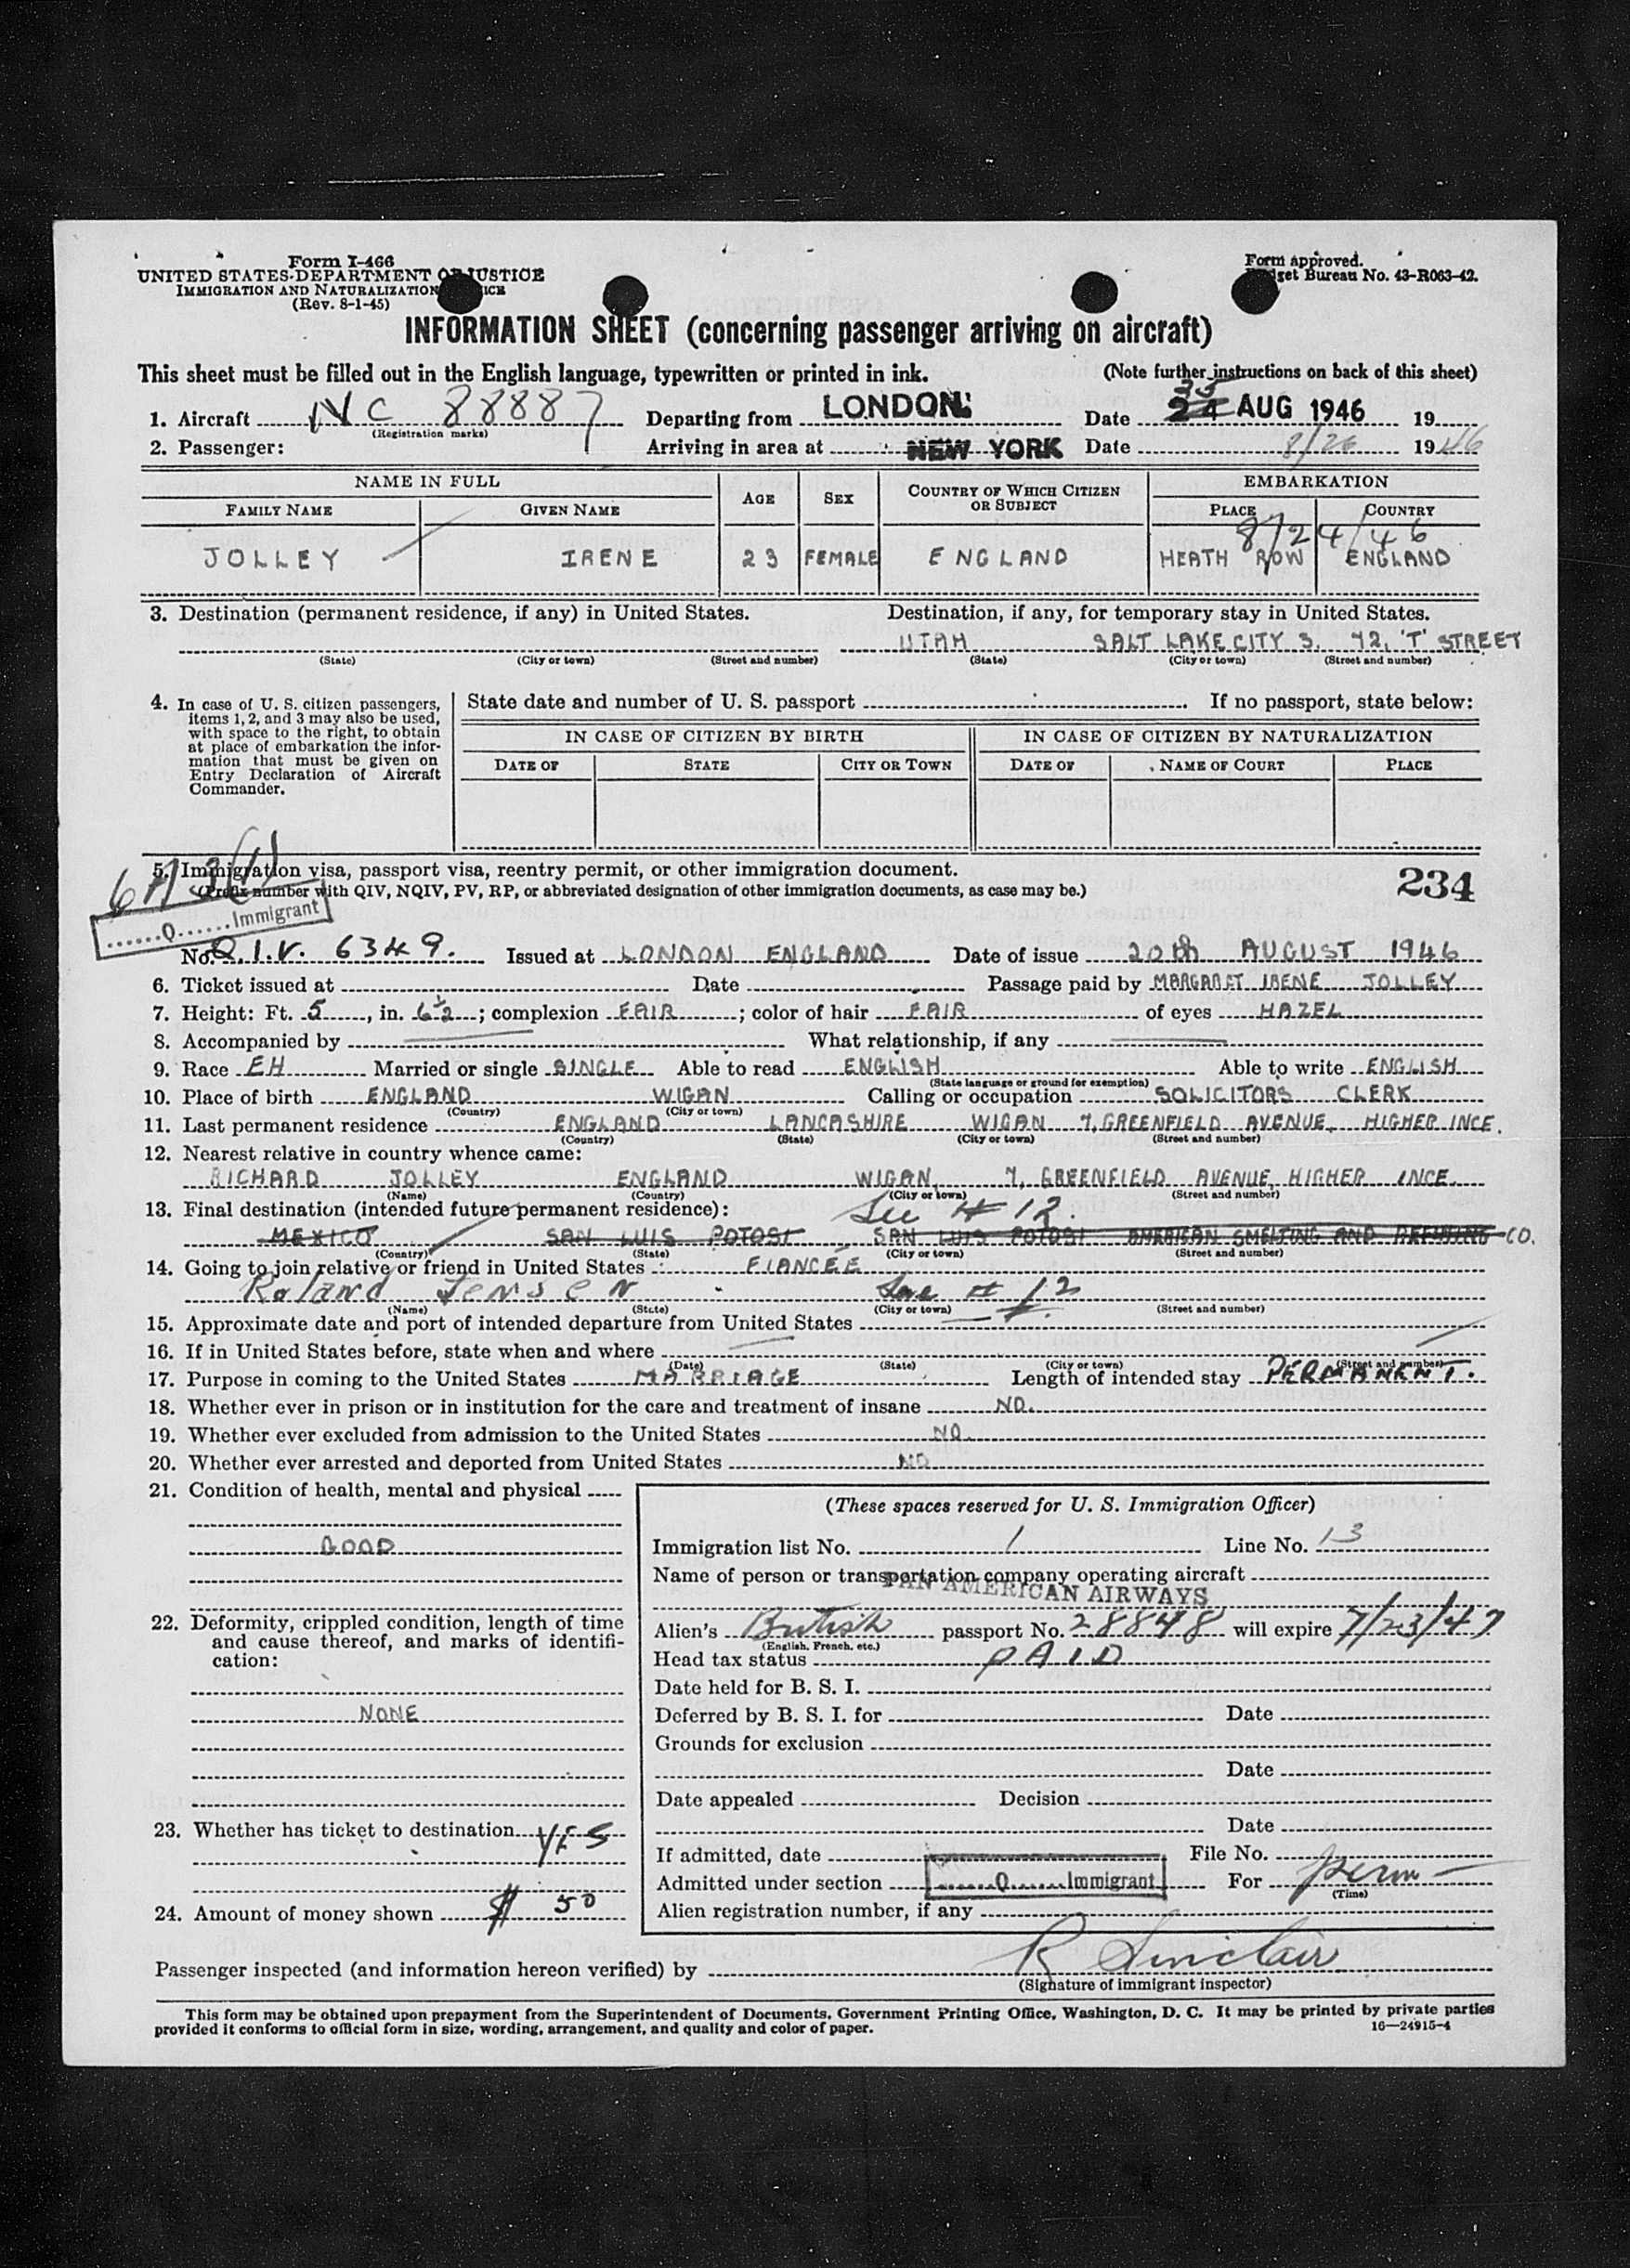 Form I-466
UNITED STATES DEPARTMENT OF JUSTICE
IMMIGRATION AND NATURALIZATION
(Rev. 8-1-45)
Form approved.
Budget Bureau No. 43-R063-42.
INFORMATION SHEET (concerning passenger arriving on aircraft)
This sheet must be filled out in the English language, typewritten or printed in ink. (Note further instructions on back of this sheet)
1. Aircraft NC 88887 Departing from LONDON. Date 24 25 AUG 1946 19
(Registration marks)
2. Passenger: Arriving in area at NEW YORK Date 8/26 1946
NAME IN FULL AGE SEX COUNTRY OF WHICH CITIZEN OR SUBJECT EMBARKATION
FAMILY NAME GIVEN NAME PLACE COUNTRY
8/24/46
JOLLEY IRENE 23 FEMALE ENGLAND HEATH ROW ENGLAND
3. Destination (permanent residence, if any) in United States. Destination, if any, for temporary stay in United States.
UTAH SALT LAKE CITY 3. 72, 'T' STREET
(State) (City or town) (Street and number) (State) (City or town) (Street and number)
4. In case of U. S. citizen passengers,
items 1, 2, and 3 may also be used,
with space to the right, to obtain
at place of embarkation the infor-
mation that must be given on
Entry Declaration of Aircraft
Commander.
State date and number of U. S. passport If no passport, state below:
IN CASE OF CITIZEN BY BIRTH IN CASE OF CITIZEN BY NATURALIZATION
DATE OF STATE CITY OR TOWN DATE OF NAME OF COURT PLACE
5. Immigration visa, passport visa, reentry permit, or other immigration document.
(Prefix number with QIV, NQIV, PV, RP, or abbreviated designation of other immigration documents, as case may be.)
234
Q Immigrant
No. Q.I.V. 6349. Issued at LONDON ENGLAND Date of issue 20th AUGUST 1946
6. Ticket issued at Date Passage paid by MARGARET IRENE JOLLEY
7. Height: Ft. 5, in. 6½; complexion FAIR; color of hair FAIR of eyes HAZEL
8. Accompanied by What relationship, if any
9. Race EH Married or single SINGLE Able to read ENGLISH Able to write ENGLISH
(State language or ground for exemption)
10. Place of birth ENGLAND WIGAN Calling or occupation SOLICITORS CLERK
(Country) (City or town)
11. Last permanent residence ENGLAND LANCASHIRE WIGAN 7, GREENFIELD AVENUE, HIGHER INCE.
(Country) (State) (City or town) (Street and number)
12. Nearest relative in country whence came:
RICHARD JOLLEY ENGLAND WIGAN, 7, GREENFIELD AVENUE, HIGHER INCE.
(Name) (Country) (City or town) (Street and number)
13. Final destination (intended future permanent residence): See # 12
MEXICO SAN LUIS POTOSI SAN LUIS POTOSI AMERICAN SMELTING AND REFINING CO.
(Country) (State) (City or town) (Street and number)
14. Going to join relative or friend in United States: FIANCÉE
Roland Jensen See # 12
(Name) (State) (City or town) (Street and number)
15. Approximate date and port of intended departure from United States
16. If in United States before, state when and where
(Date) (State) (City or town) (Street and number)
17. Purpose in coming to the United States MARRIAGE Length of intended stay PERMANENT.
18. Whether ever in prison or in institution for the care and treatment of insane NO.
19. Whether ever excluded from admission to the United States NO.
20. Whether ever arrested and deported from United States NO
21. Condition of health, mental and physical
GOOD
22. Deformity, crippled condition, length of time
and cause thereof, and marks of identifi-
cation:
NONE
23. Whether has ticket to destination YES
24. Amount of money shown $ 50
(These spaces reserved for U. S. Immigration Officer)
Immigration list No. 1 Line No. 13
Name of person or transportation company operating aircraft
PAN AMERICAN AIRWAYS
Alien's British passport No. 28848 will expire 7/23/47
(English, French, etc.)
Head tax status PAID
Date held for B. S. I.
Deferred by B. S. I. for Date
Grounds for exclusion
Date
Date appealed Decision
Date
If admitted, date File No.
Admitted under section Q Immigrant For perm
(Time)
Alien registration number, if any
Passenger inspected (and information hereon verified) by R Sinclair
(Signature of immigrant inspector)
This form may be obtained upon prepayment from the Superintendent of Documents, Government Printing Office, Washington, D. C. It may be printed by private parties
provided it conforms to official form in size, wording, arrangement, and quality and color of paper. 16—24915-4